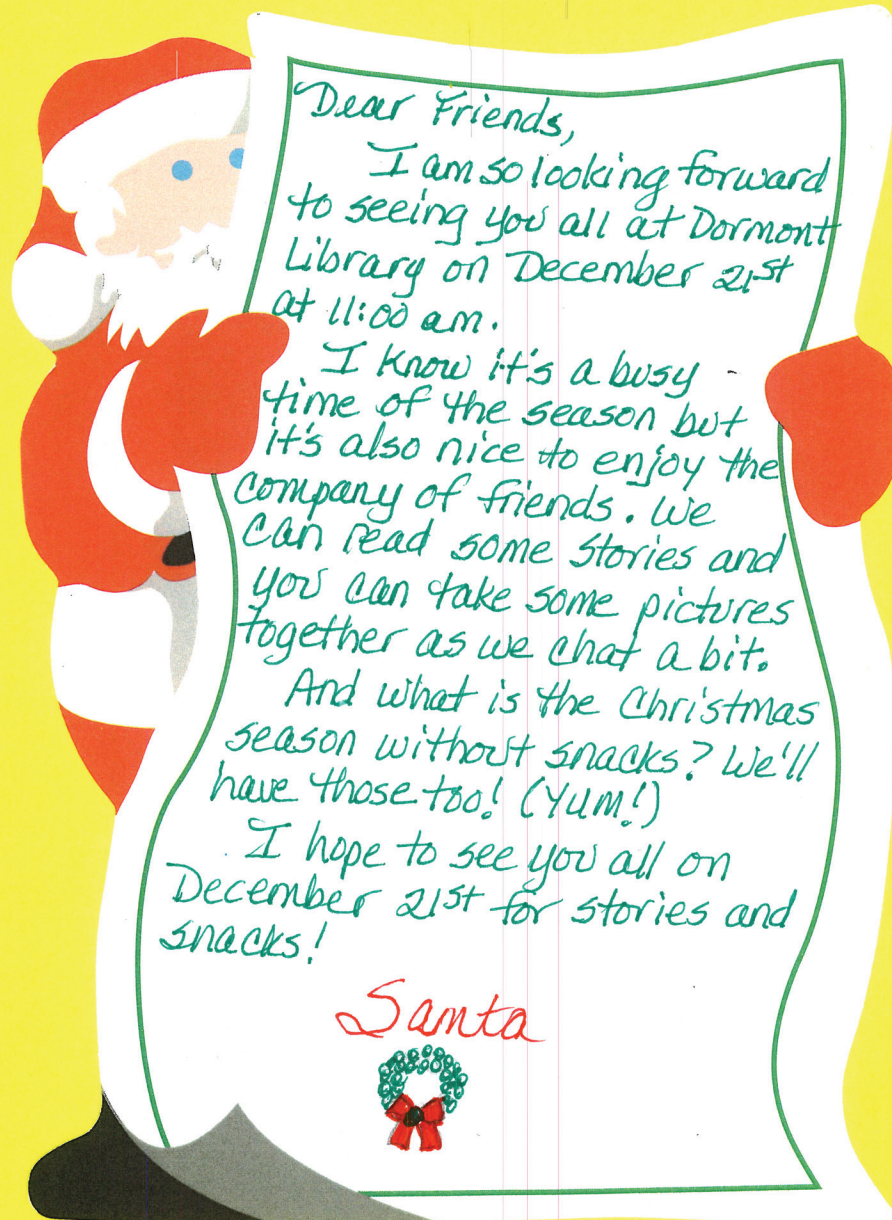 Dear Friends,
I am so looking forward
to seeing you all at Dormont
Library on December 21st
at 11:00 am.
I know it's a busy
time of the season but
it's also nice to enjoy the
company of friends. We
can read some stories and
you can take some pictures
together as we chat a bit.
And what is the Christmas
season without snacks? We'll
have those too! (YUM!)
I hope to see you all on
December 21st for stories and
snacks!
Santa